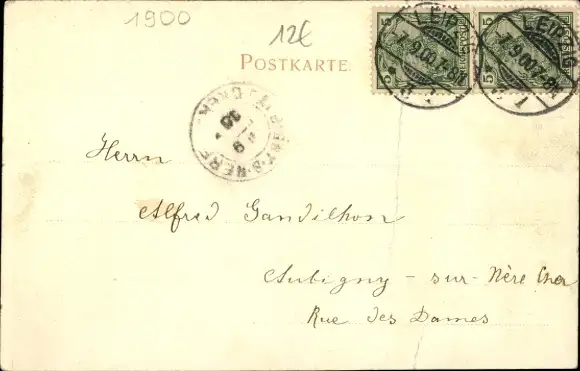 1900
12€
POSTKARTE.
LEIPZIG
7.9.00.7-8N
1
LEIPZIG
7.9.00.7-8N
1
5 5
5 5
Herrn
Alfred Gandilhon
Aubigny - sur - Nère Cher
Rue des Dames